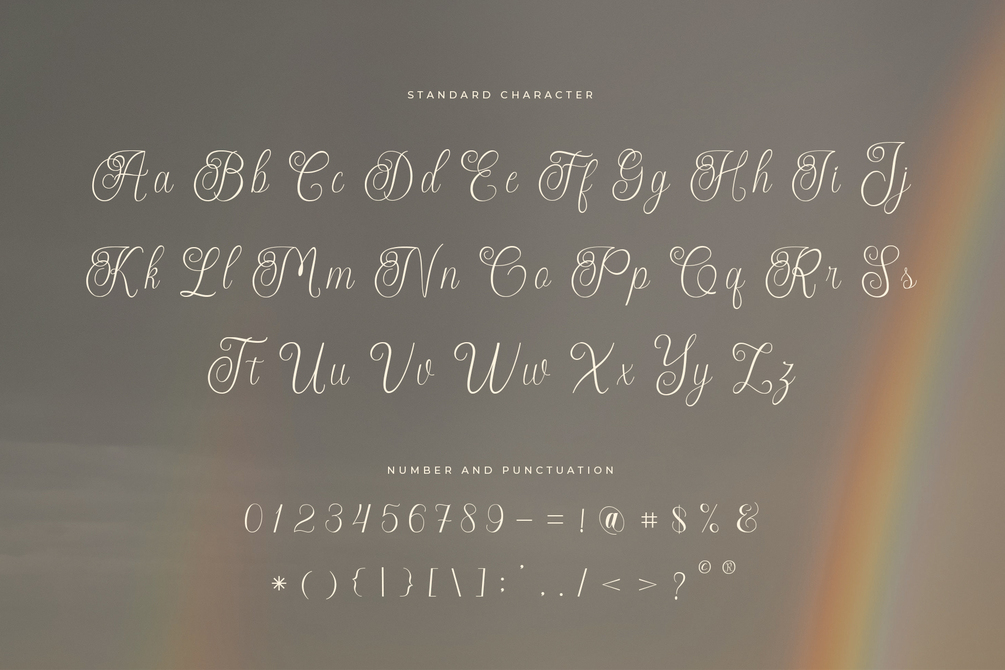 STANDARD CHARACTER
Aa Bb Cc Dd Ee Ff Gg Hh Ii Jj
Kk Ll Mm Nn Oo Pp Qq Rr Ss
Tt Uu Vv Ww Xx Yy Zz
NUMBER AND PUNCTUATION
0 1 2 3 4 5 6 7 8 9 – = ! @ # $ % &
* ( ) { | } [ \ ] : ' . . / < > ? © ®